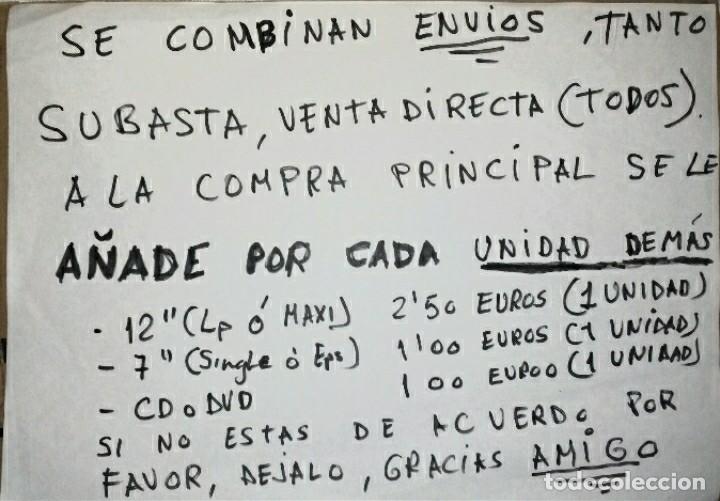 SE COMBINAN ENVIOS, TANTO
SUBASTA, VENTA DIRECTA (TODOS).
A LA COMPRA PRINCIPAL SE LE
AÑADE POR CADA UNIDAD DEMÁS
- 12" (Lp ó MAXI) 2'50 EUROS (1 UNIDAD)
- 7" (Single ó Eps) 1'00 EUROS (1 UNIDAD)
- CD o DVD 1 00 EUROO (1 UNIDAD)
SI NO ESTAS DE ACUERDO POR
FAVOR, DEJALO, GRACIAS AMIGO
todocoleccion